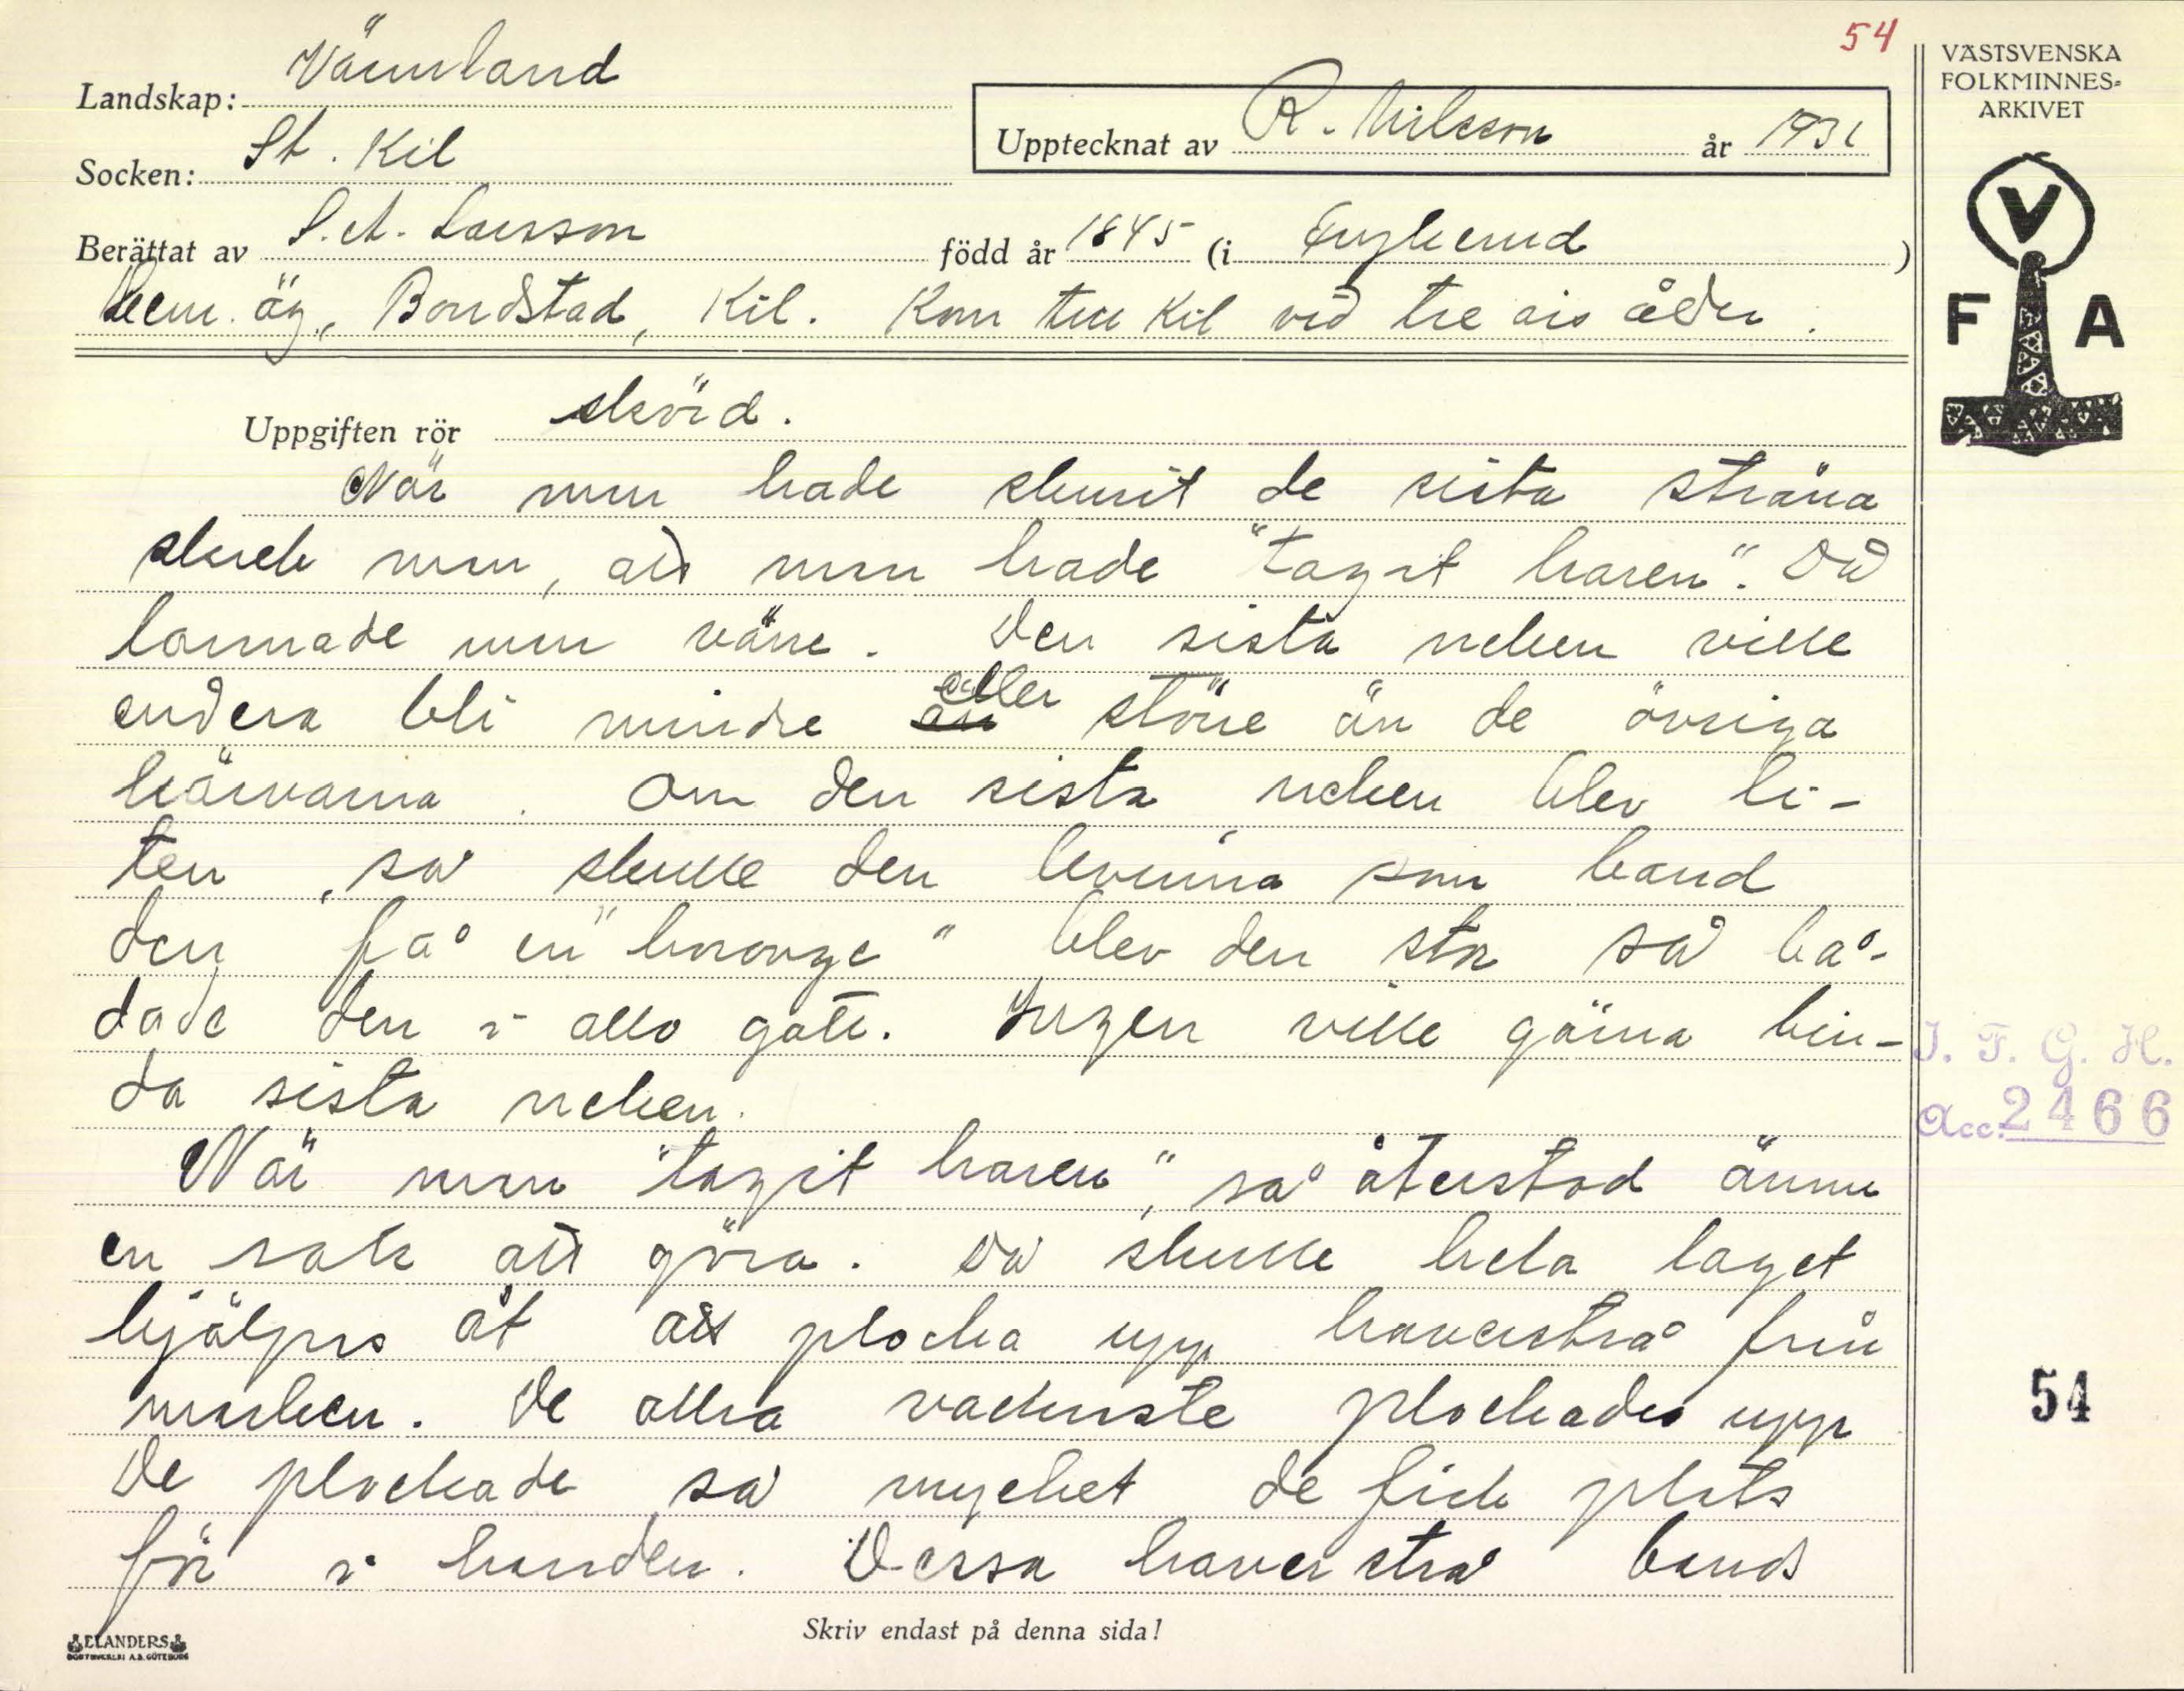 54
VÄSTSVENSKA
FOLKMINNES-
ARKIVET
Landskap: Värmland
Upptecknat av R. Nilsson år 1931
Socken: St. Kil
Berättat av S. A. Larsson född år 1845 (i )
Hem. äg., Bondstad, Kil. Kom till Kil vid tre års ålder.
V
F A
Uppgiften rör skörd.
När man hade skurit de sista stråna
skrek man, att man hade "tagit haren". Då
lannade man värre. Den sista neken ville
endera bli mindre än eller större än de övriga
kärvarna. Om den sista neken blev li-
ten, så skulle den kvinna som band
den få en "horonge" blev den stor så bå-
dade den i allo gott. Ingen ville gärna bin-
da sista neken.
När man "tagit haren", så återstod ännu
en sak att göra. Då skulle hela laget
hjälpas åt att plocka upp haverstrå från
marken. De allra vackraste plockades upp
De plockade så mycket de fick plats
för i handen. Dessa haverstrå bands
I. F. G. H.
Acc. 2466
54
Skriv endast på denna sida!
ELANDERS
BOKTRYCKERI A.B. GÖTEBORG